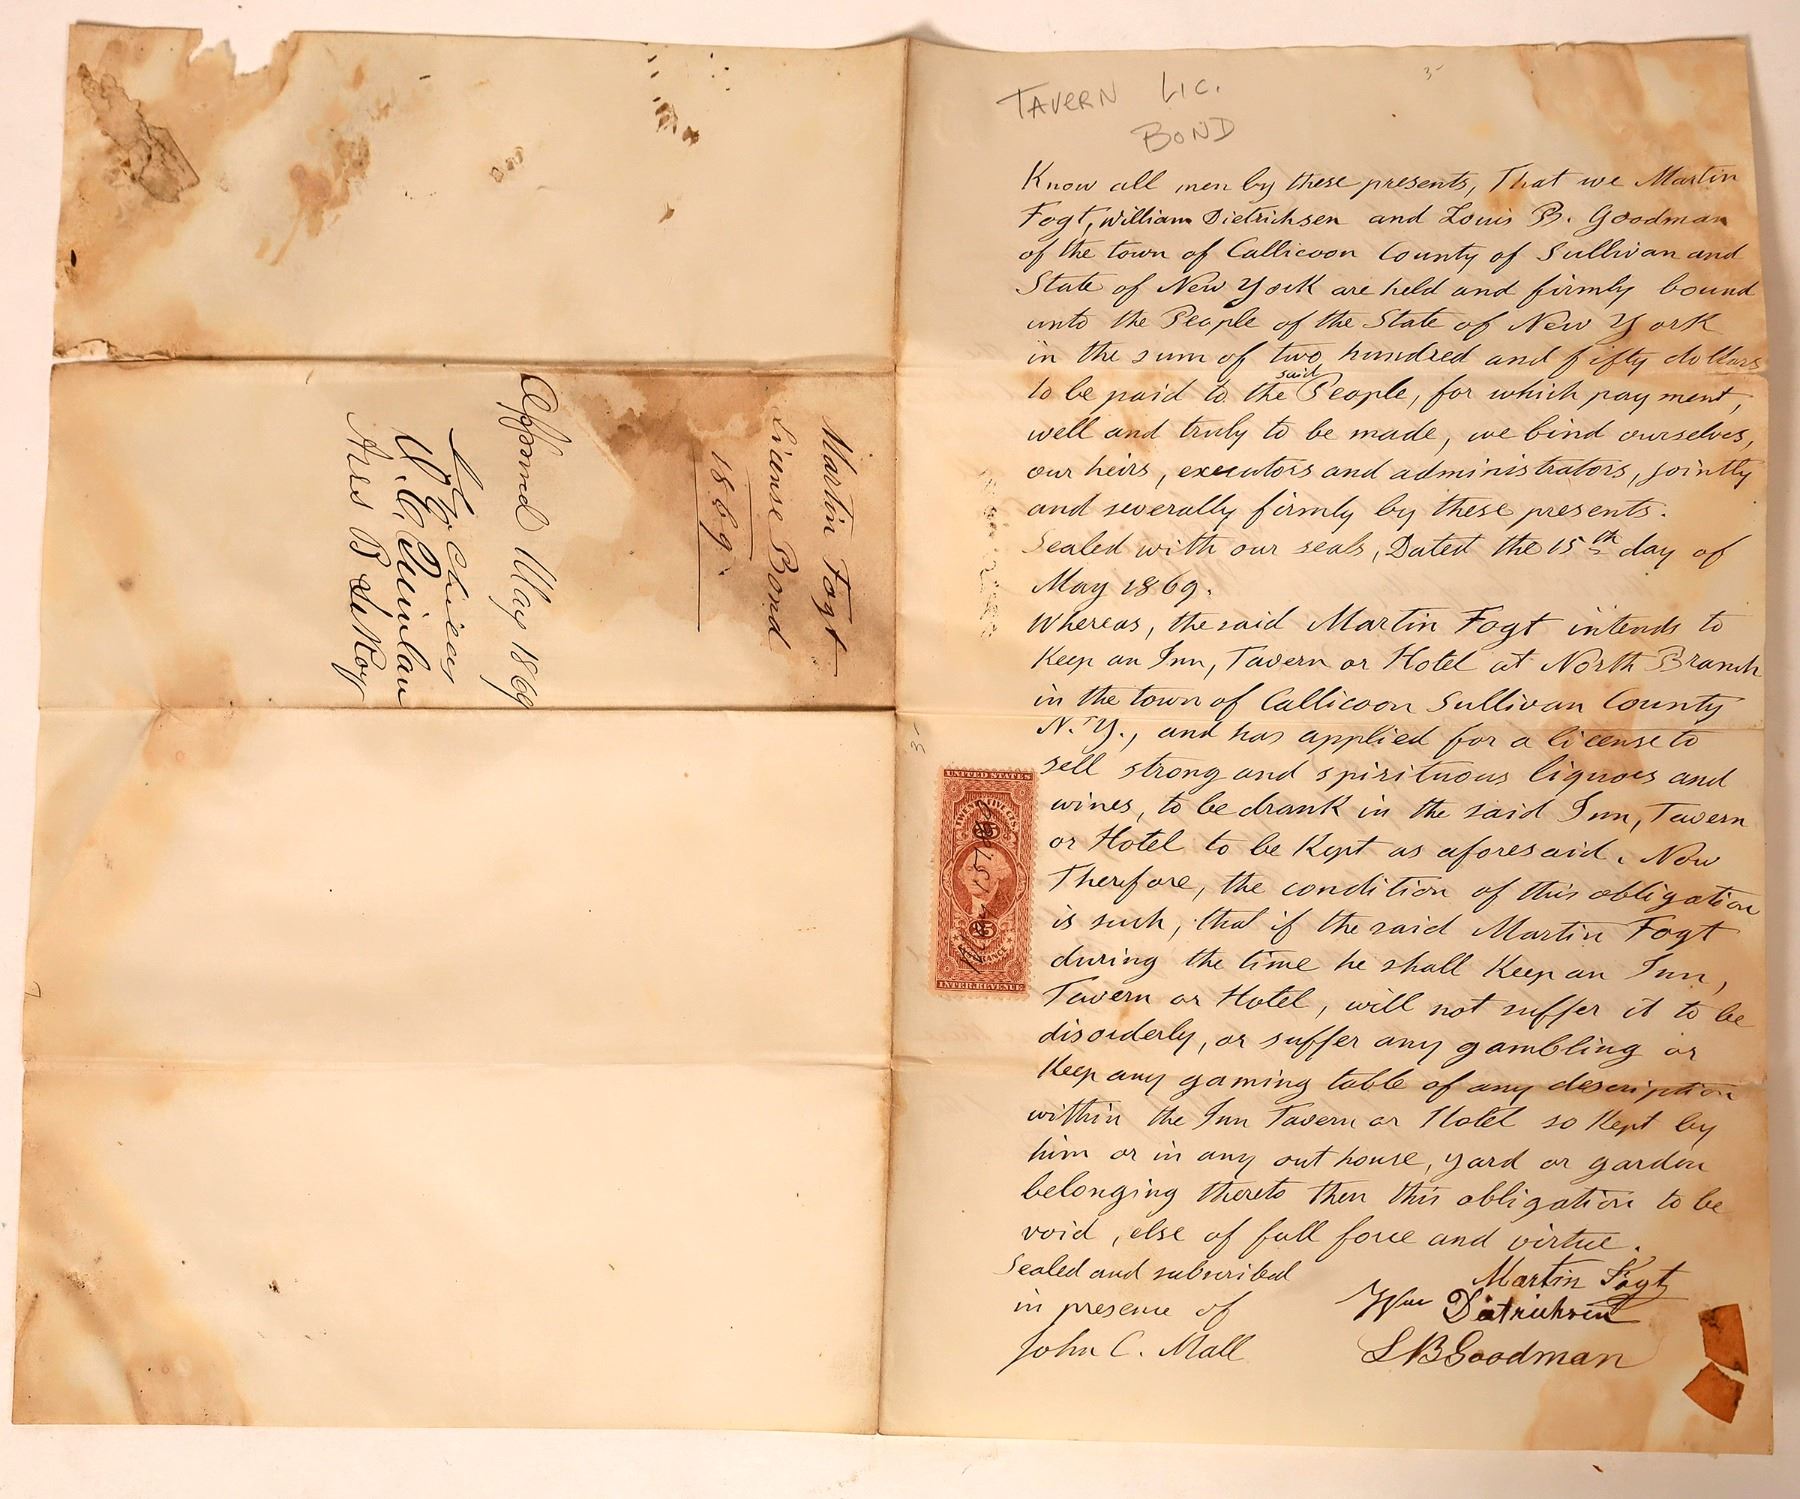 TAVERN LIC.
BOND
Know all men by these presents, That we Martin
Fogt, William Dietrichsen and Louis B. Goodman
of the town of Callicoon County of Sullivan and
State of New York are held and firmly bound
unto the People of the State of New York
in the sum of two hundred and fifty dollars
to be paid to the said People, for which payment,
well and truly to be made, we bind ourselves,
our heirs, executors and administrators, jointly
and severally firmly by these presents.
Sealed with our seals, Dated the 15th day of
May 1869.
Whereas, the said Martin Fogt intends to
Keep an Inn, Tavern or Hotel at North Branch
in the town of Callicoon Sullivan County
N.Y., and has applied for a license to
sell strong and spirituous liquors and
wines, to be drank in the said Inn, Tavern
or Hotel to be Kept as aforesaid. Now
Therefore, the condition of this obligation
is such, that if the said Martin Fogt
during the time he shall Keep an Inn,
Tavern or Hotel, will not suffer it to be
disorderly, or suffer any gambling or
Keep any gaming table of any description
within the Inn Tavern or Hotel so Kept by
him or in any out house, yard or garden
belonging thereto then this obligation to be
void, else of full force and virtue.
Sealed and subscribed
in presence of
John C. Mall
Martin Fogt
Wm Dietrichsen
L B Goodman
UNITED STATES
May 15th 69
INTER. REVENUE
Martin Fogt
License Bond
1869.
May 1869
W. C. Quinlan
B LeRoy